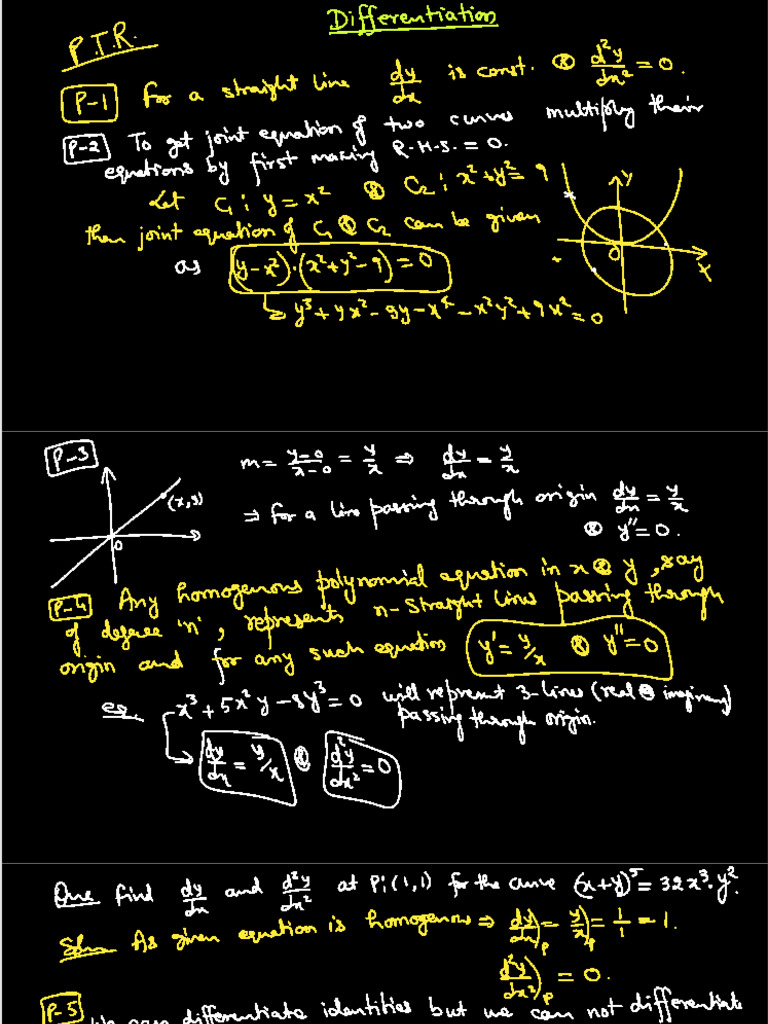 Differentiation
P.T.R.
P-1 For a straight line dy/dx is const. & d²y/dx² = 0.
P-2 To get joint equation of two curves multiply their
equations by first making R.H.S. = 0.
Let C₁ : y = x² & C₂ : x² + y² = 9
then joint equation of C₁ & C₂ can be given
as (y - x²)·(x² + y² - 9) = 0
y³ + yx² - 9y - x⁴ - x²y² + 9x² = 0
Y
O
X
P-3
m = y-0/x-0 = y/x ⇒ dy/dx = y/x
(x,y)
O
⇒ for a line passing through origin dy/dx = y/x
& y'' = 0.
P-4 Any homogenous polynomial equation in x & y, say
of degree 'n', represents n-straight lines passing through
origin and for any such equation y' = y/x & y'' = 0
eg. x³ + 5x²y - 8y³ = 0 will represent 3-lines (real & imaginary)
passing through origin.
dy/dx = y/x & d²y/dx² = 0
Que find dy/dx and d²y/dx² at P:(1,1) for the curve (x+y)⁵ = 32x³·y².
Soln As given equation is homogenous ⇒ dy/dx)ₚ = y/x)ₚ = 1/1 = 1.
d²y/dx²)ₚ = 0.
P-5 We can differentiate identities but we can not differentiate